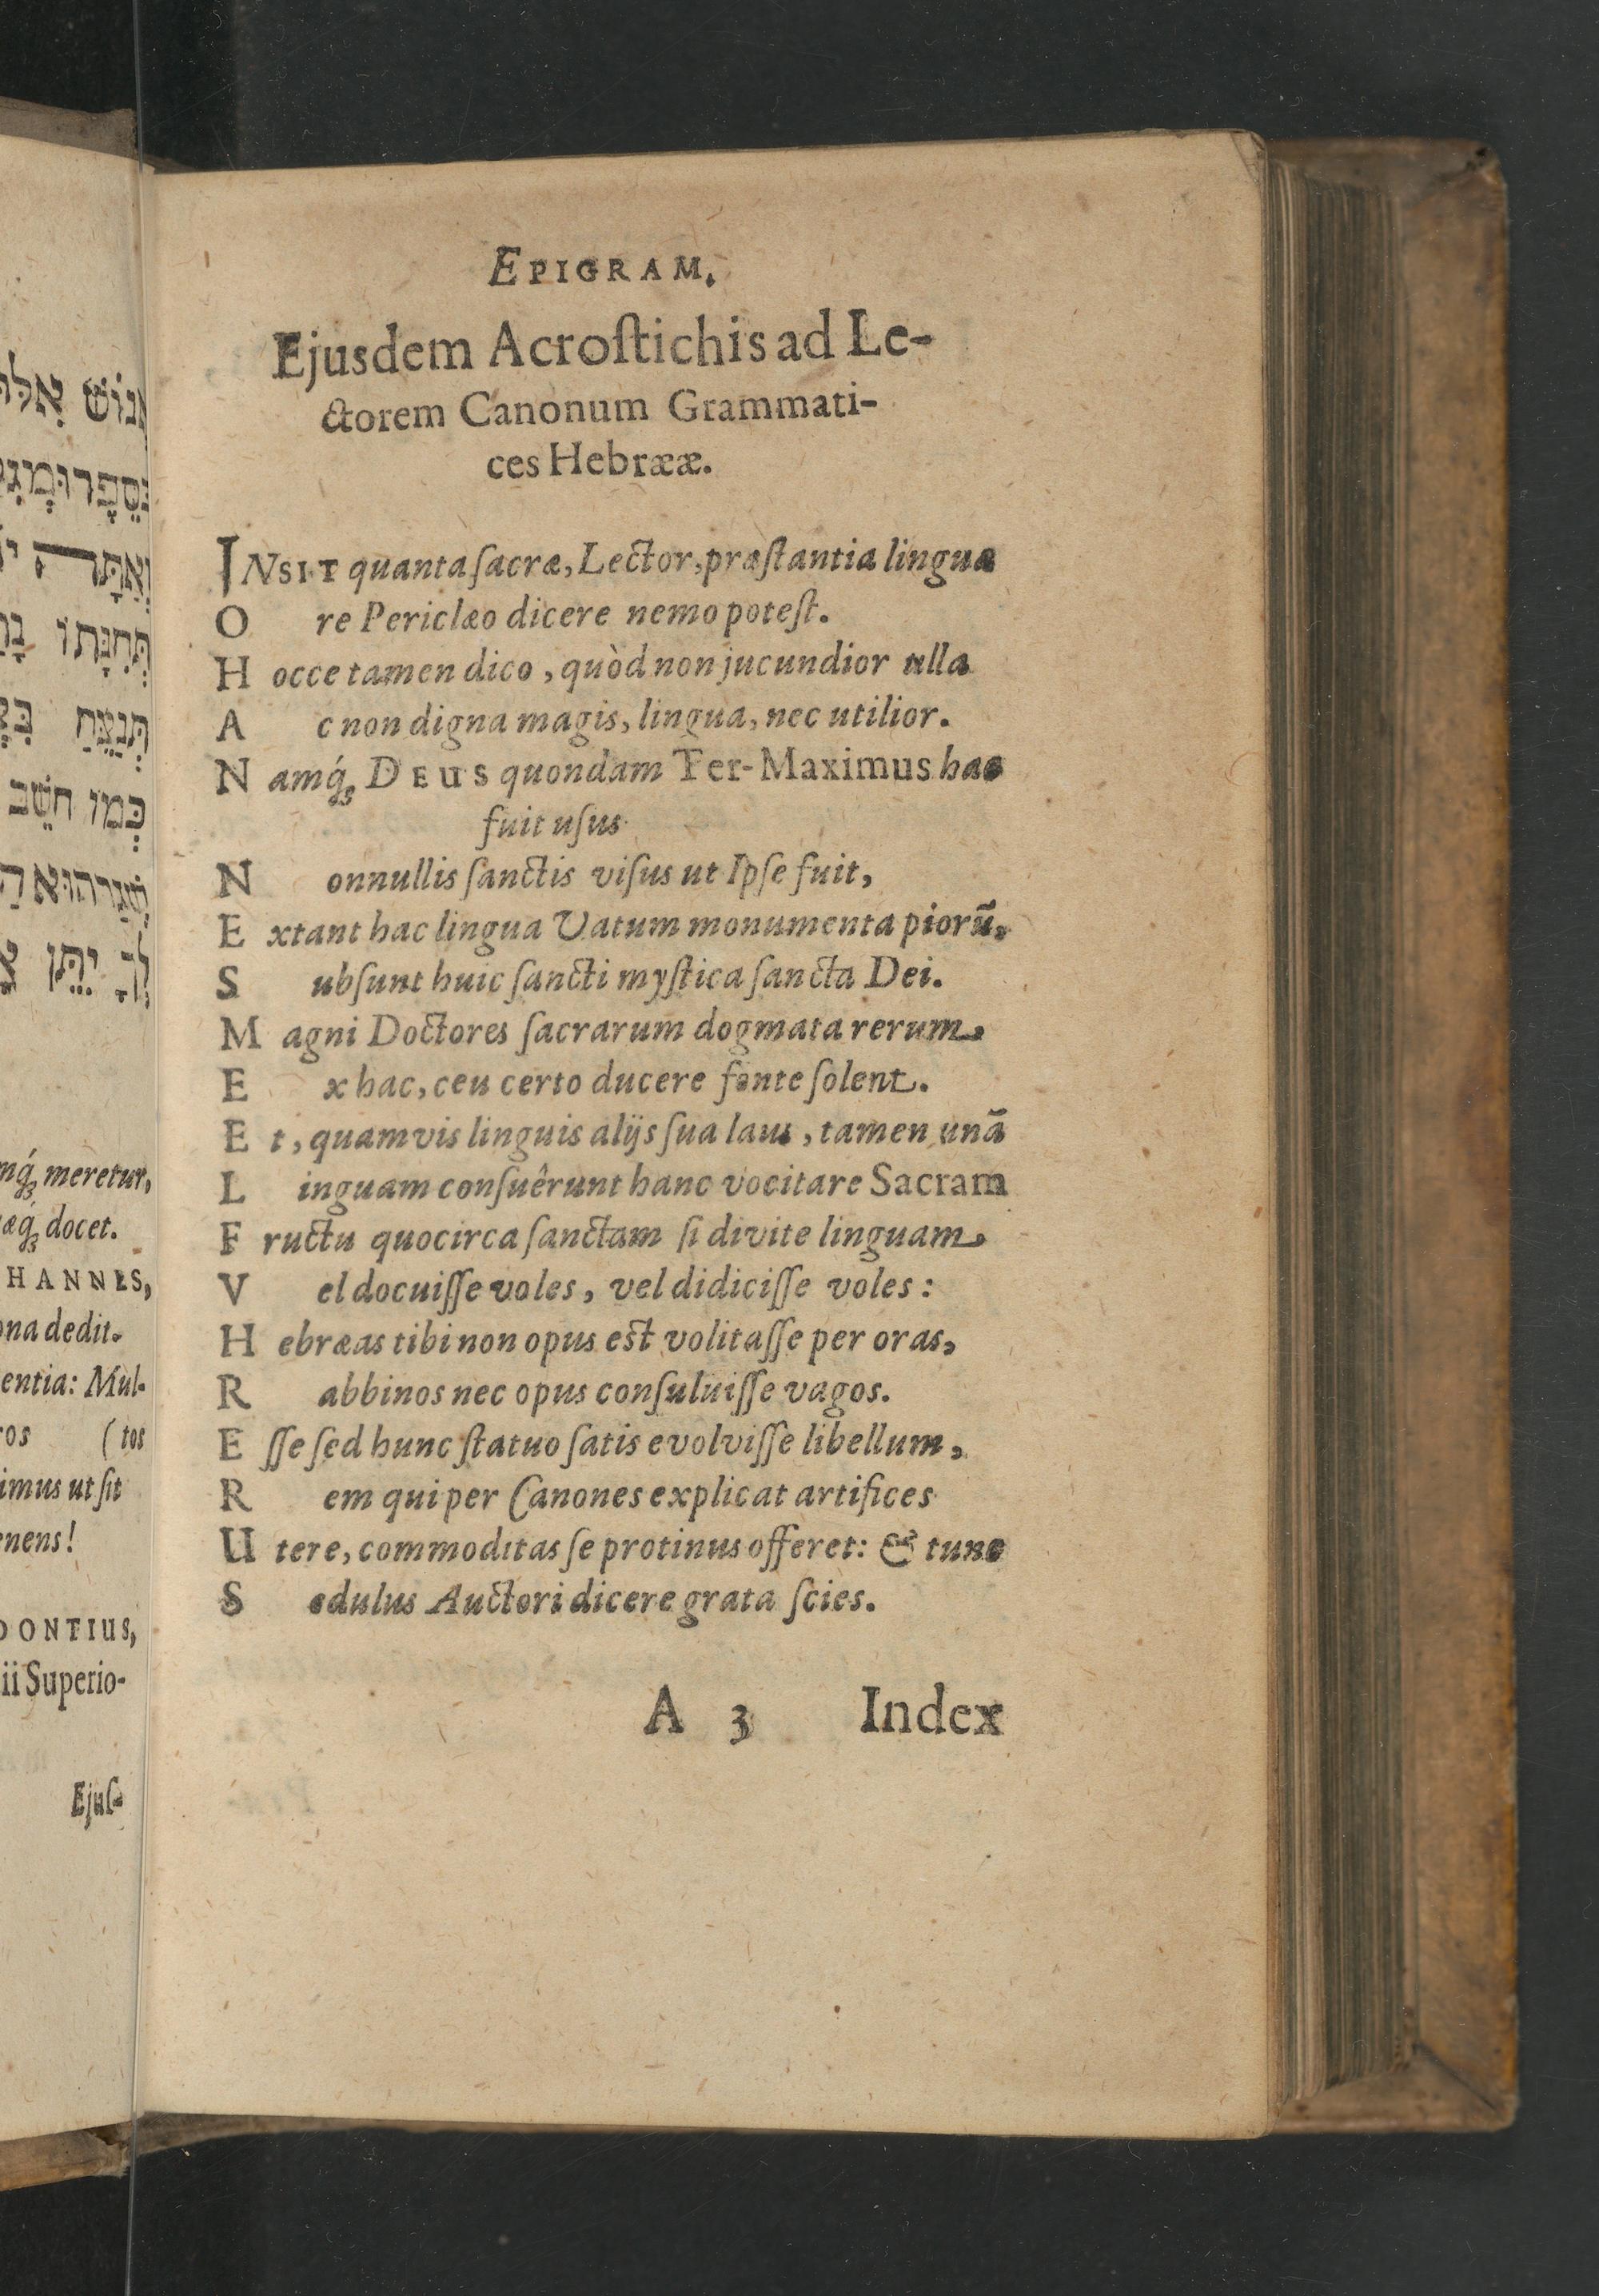 EPIGRAM.
Ejusdem Acroſtichis ad Le-
ctorem Canonum Grammati-
ces Hebrææ.
INSIT quanta ſacræ, Lector, præſtantia linguæ
O re Periclæo dicere nemo poteſt.
H occe tamen dico, quòd non jucundior ulla
A c non digna magis, lingua, nec utilior.
N amq́; DEUS quondam Ter-Maximus hac
fuit uſus
N onnullis ſanctis viſus ut Ipſe fuit,
E xtant hac lingua Vatum monumenta piorũ.
S ubſunt huic ſancti myſtica ſancta Dei.
M agni Doctores ſacrarum dogmata rerum,
E x hac, ceu certo ducere fonte ſolent.
E t, quamvis linguis alijs ſua laus, tamen unã
L inguam conſuêrunt hanc vocitare Sacram
F ructu quocirca ſanctam ſi divite linguam,
V el docuiſſe voles, vel didiciſſe voles:
H ebræas tibi non opus eſt volitaſſe per oras,
R abbinos nec opus conſuluiſſe vagos.
E ſſe ſed hunc ſtatuo ſatis evolviſſe libellum,
R em qui per Canones explicat artifices
U tere, commoditas ſe protinus offeret: & tunc
S edulus Auctori dicere grata ſcies.
A 3 Index
meretur,
docet.
HANNES,
dedit.
entia: Mul-
(tos
imus ut ſit
nens!
DONTIUS,
ii Superio-
Ejuſ-